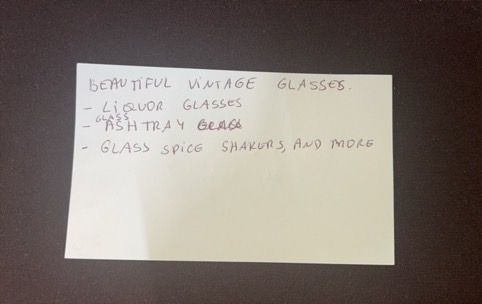 BEAUTIFUL VINTAGE GLASSES.
- LIQUOR GLASSES
- GLASS ASHTRAY
- GLASS SPICE SHAKERS, AND MORE